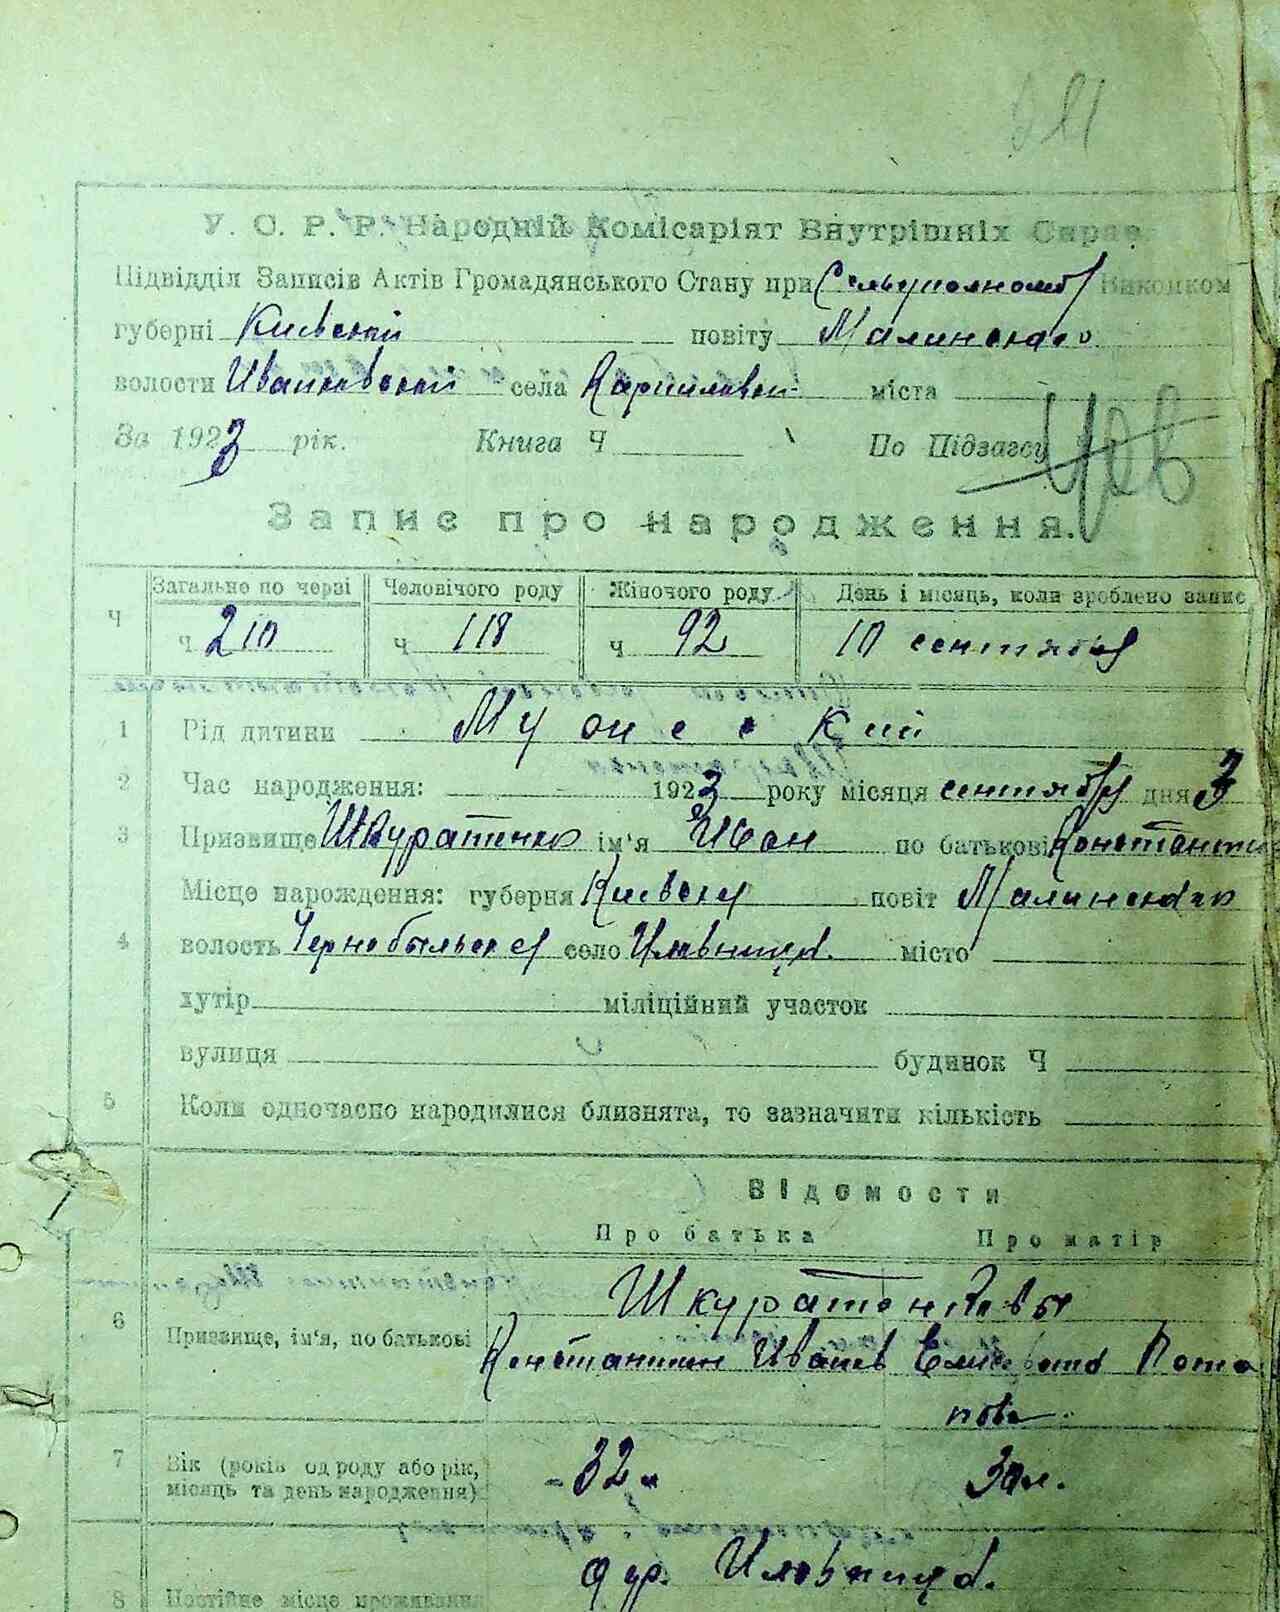 У. С. Р. Р. Народній Комісаріят Внутрішніх Справ
Підвідділ Записів Актів Громадянського Стану при Виконком
губерні Киевской повіту Малинского
волости Иванковской села місτα
За 1923 рік. Книга Ч По Підзагсу
Запис про народження.
Загальне по черзі Человічого роду Жіночого роду День і місяць, коли зроблено запис
Ч ч 210 ч 118 ч 92 10 сентября
1 Рід дитини Мужеский
2 Час народження: 1923 року місяця сентября дня 3
3 Призвище Шкуратенко ім'я Иван по батькові Константин
Місце нарождення: губерня Киевская повіт Малинский
4 волость Чернобыльская село Иловница місто
хутір міліційний участок
вулиця будинок Ч
5 Коли одночасно народилися близнята, то зазначити кількість
Відомости
Про батька Про матір
Шкуратенковы
6 Призвище, ім'я, по батькові Константин Иванов Елисавета Пота
пова.
7 Вік (років од роду або рік, 32 30 л.
місяць та день народження)
дер. Иловница.
8 Постійне місце проживання